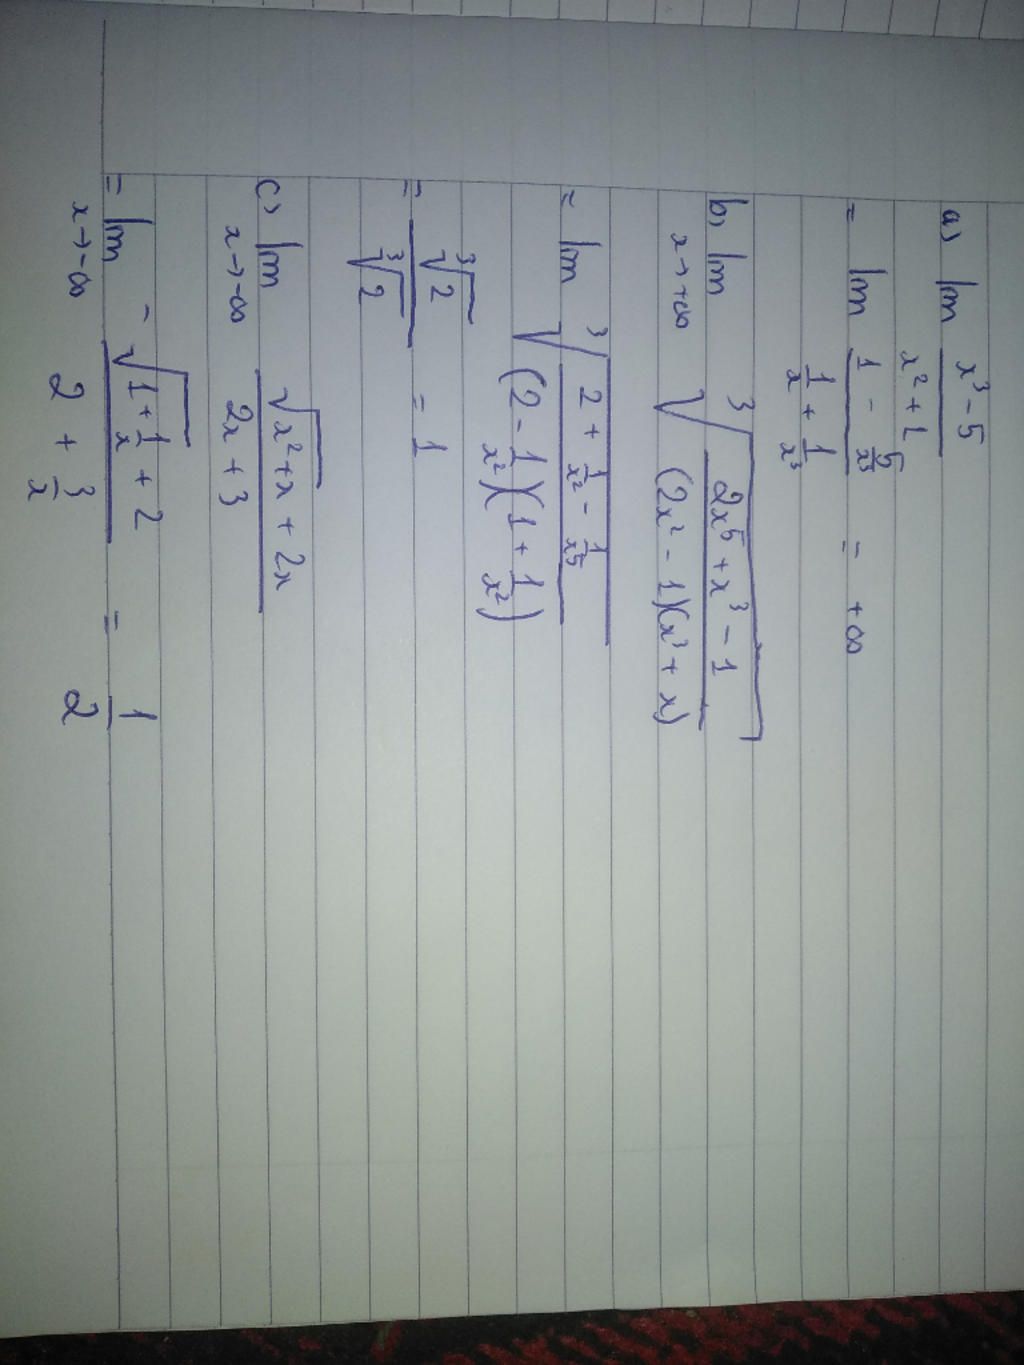 a) lim x³ - 5 / x² + 1
= lim 1 - 5/x³ / 1/x + 1/x³ = +∞
b) lim x→+∞ ³√(2x⁵ + x³ - 1 / (2x² - 1)(x³ + x))
= lim ³√(2 + 1/x² - 1/x⁵ / (2 - 1/x²)(1 + 1/x²))
= ³√2 / ³√2 = 1
c) lim x→-∞ √x² + x + 2x / 2x + 3
= lim x→-∞ -√1 + 1/x + 2 / 2 + 3/x = 1/2